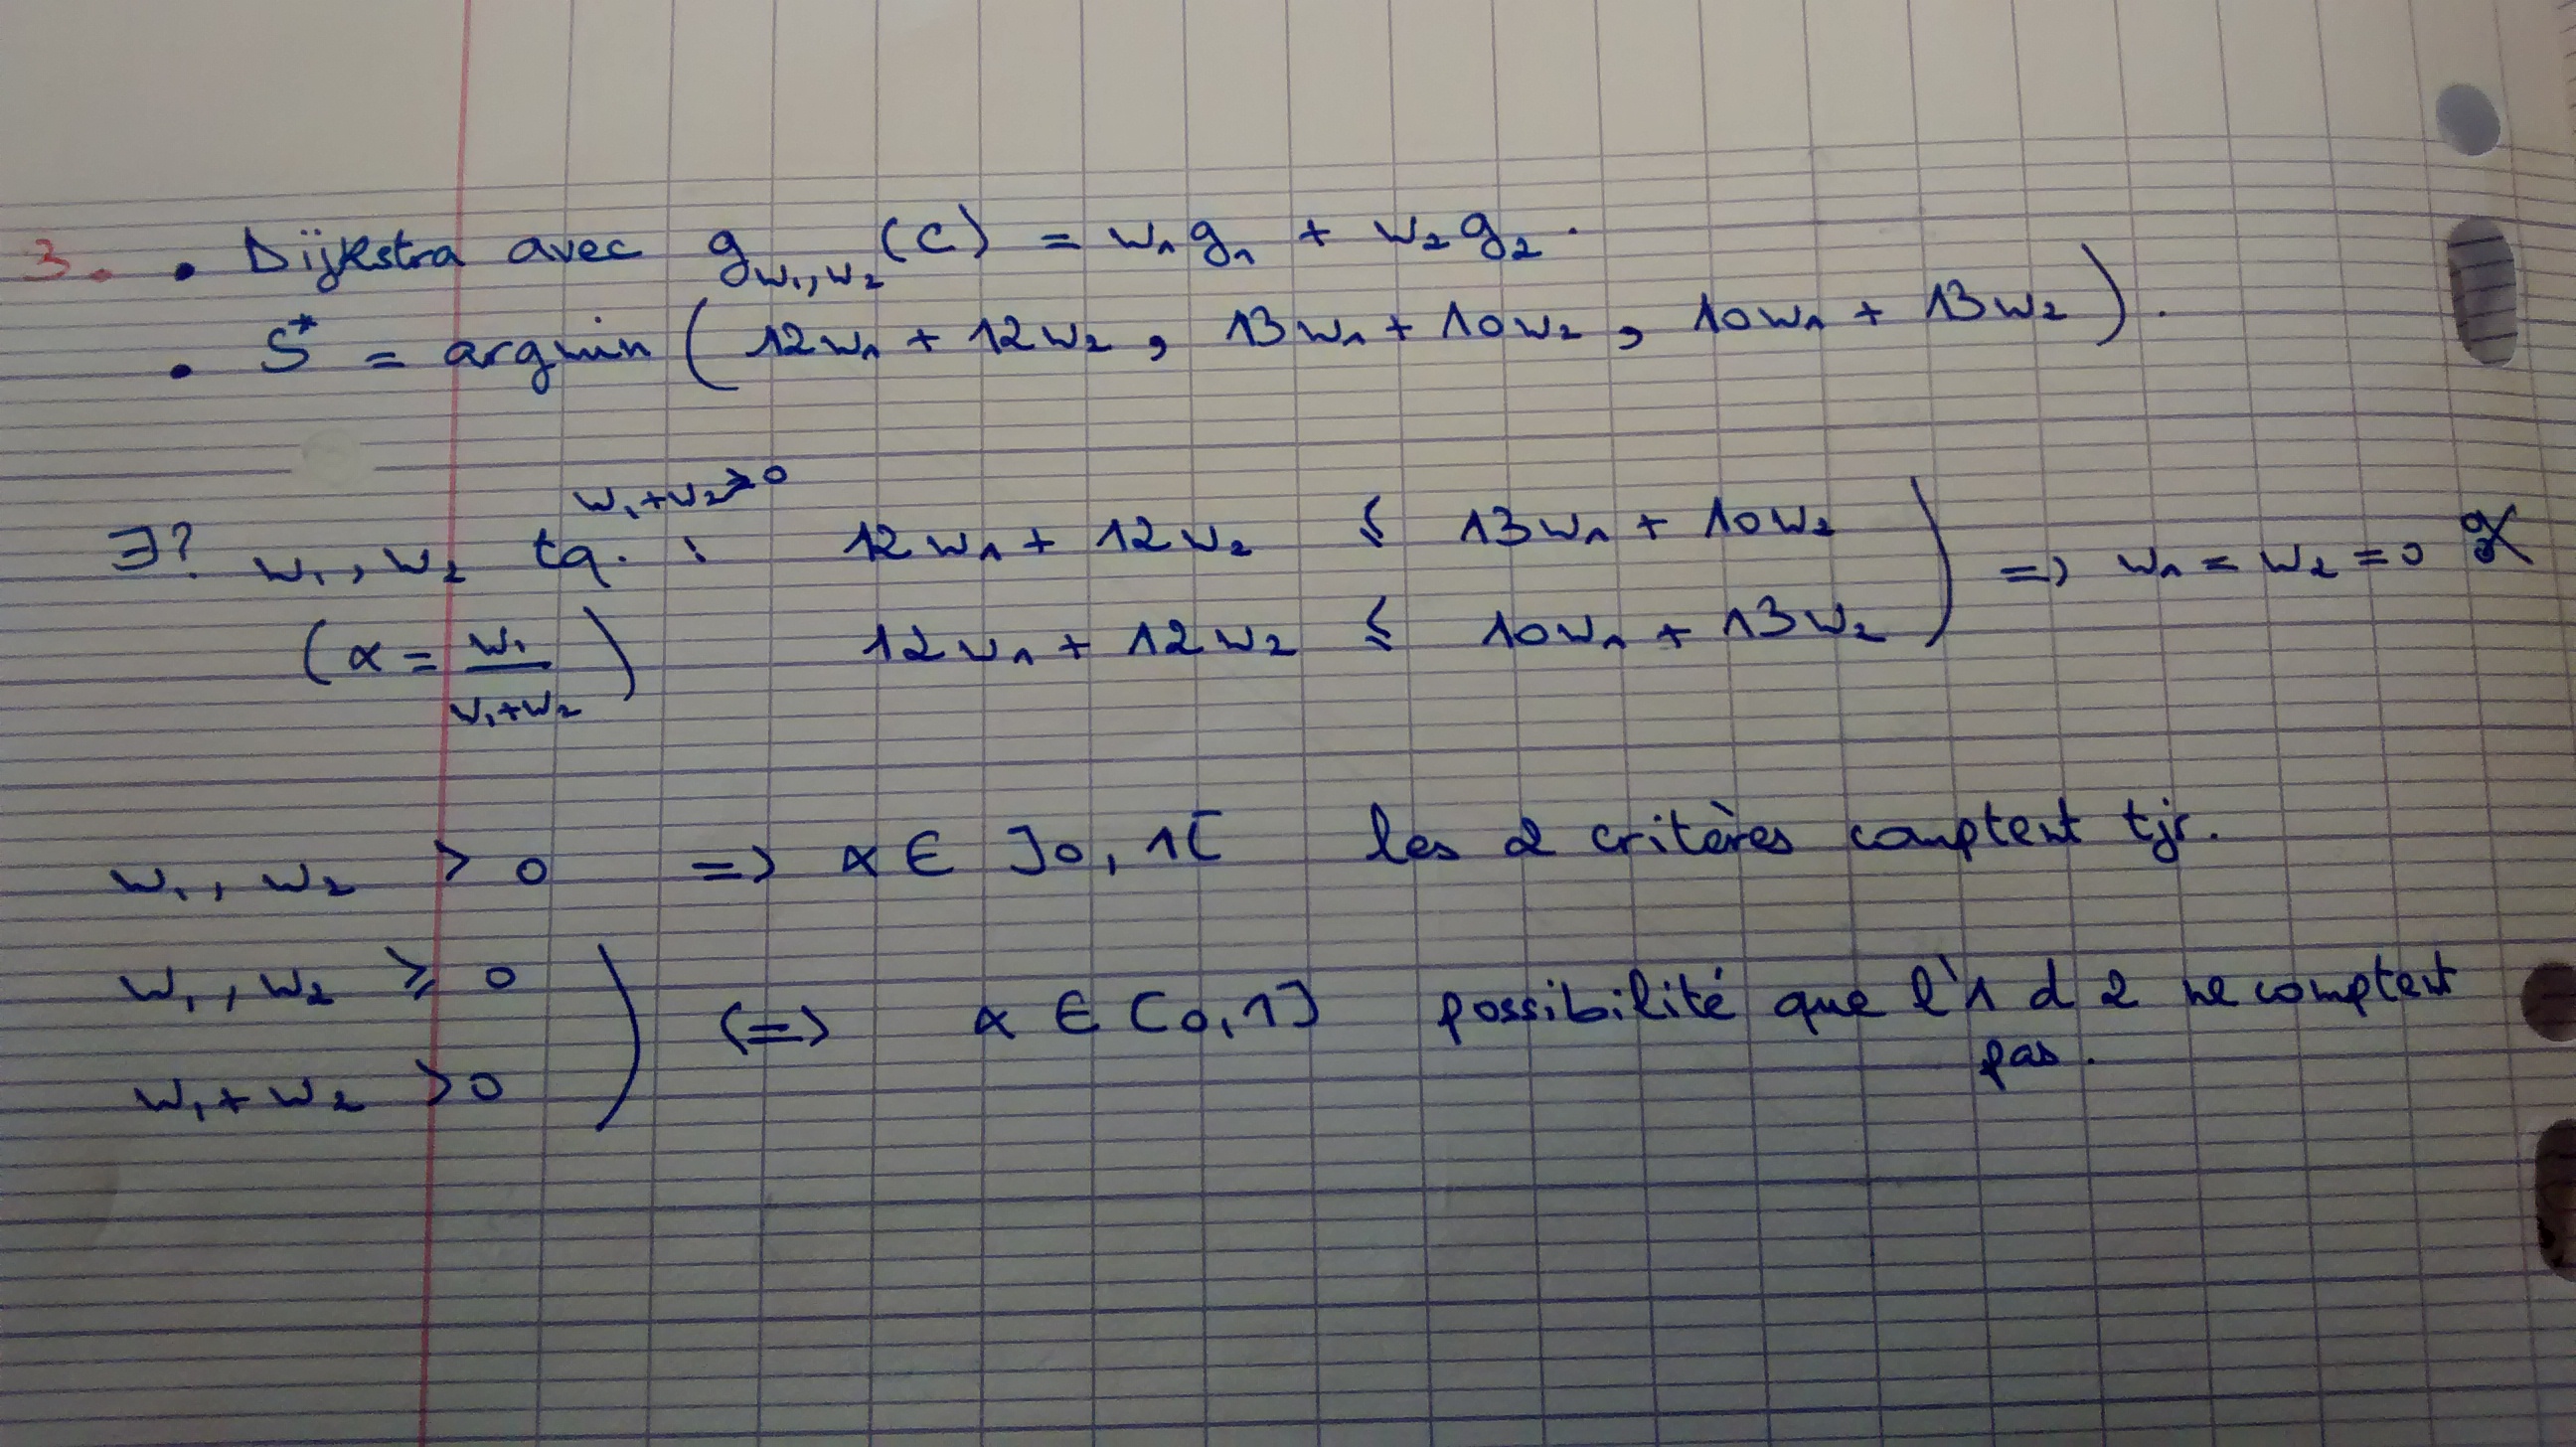 3. • Dijkstra avec g_{w₁,w₂}(c) = w₁g₁ + w₂g₂.
• S* = argmin (12w₁ + 12w₂, 13w₁ + 10w₂, 10w₁ + 13w₂).
w₁+w₂>0
∃? w₁, w₂ tq. : 12w₁ + 12w₂ ≤ 13w₁ + 10w₂
(α = w₁/(w₁+w₂)) 12w₁ + 12w₂ ≤ 10w₁ + 13w₂ ) => w₁ = w₂ = 0
w₁, w₂ > 0 => α ∈ ]0, 1[ les 2 critères comptent tjr.
w₁, w₂ ≥ 0
w₁ + w₂ > 0 ) (=) α ∈ [0,1] possibilité que l'1 d 2 ne comptent
pas.